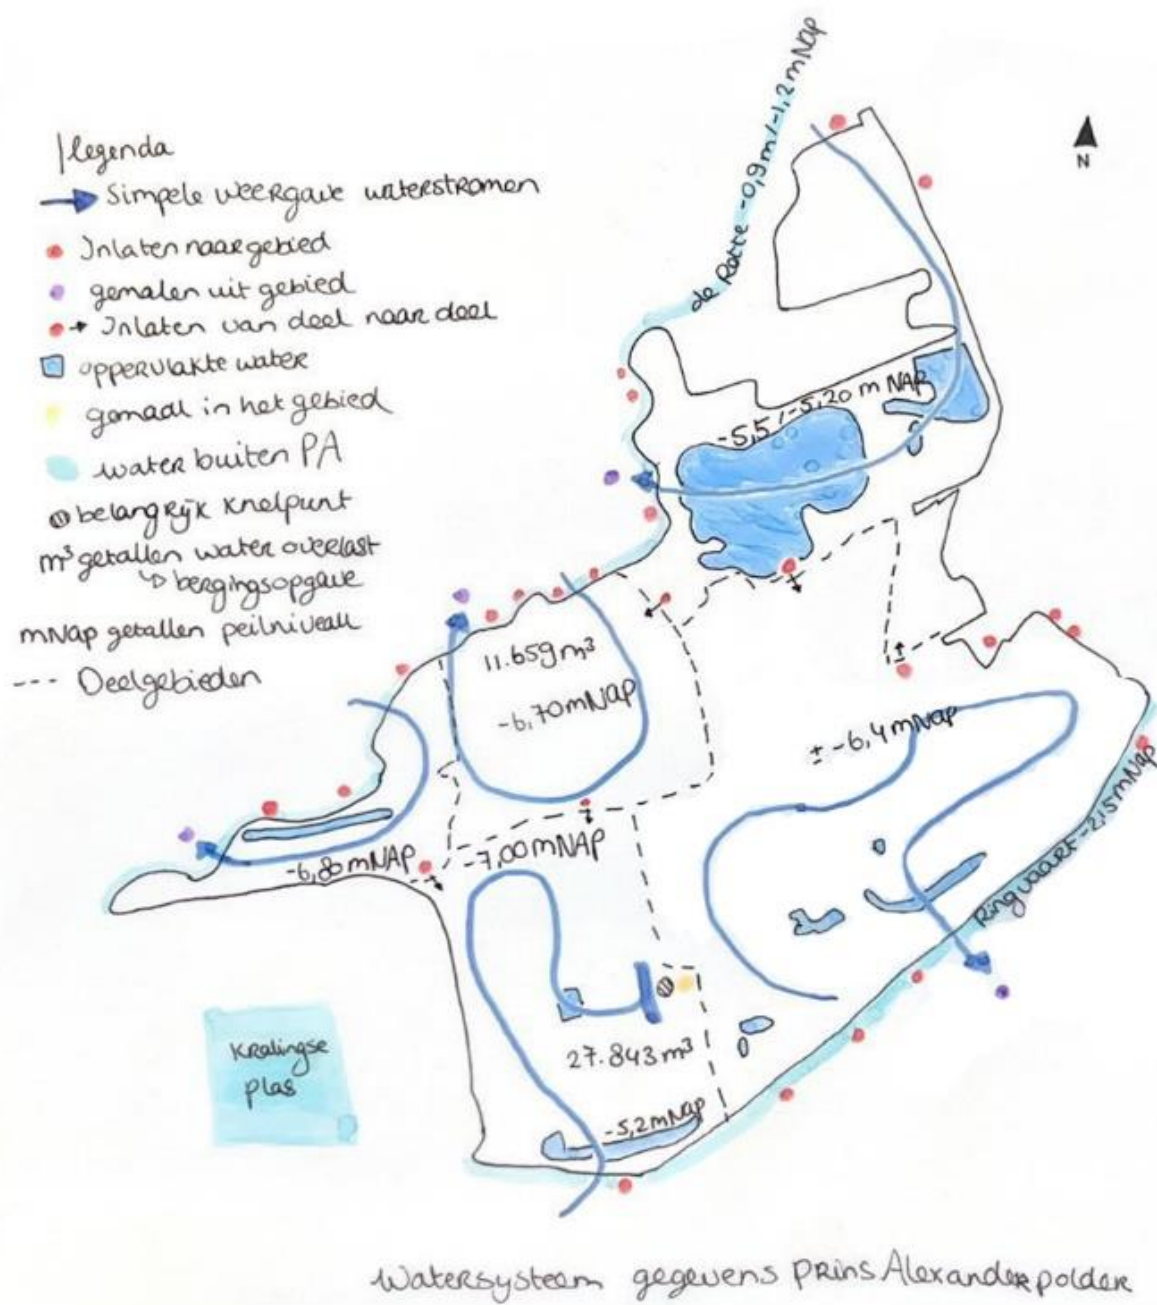 legenda
Simpele weergave waterstromen
Inlaten naar gebied
gemalen uit gebied
Inlaten van deel naar deel
oppervlakte water
gemaal in het gebied
water buiten PA
belangrijk knelpunt
m³ getallen water overlast
↳ bergingsopgave
mNap getallen peilniveau
--- Deelgebieden
de Rotte -0,9m/-1,2 mNap
N
-5,5/-5,20 m NAP
11.659 m³
-6,70 mNap
± -6,4 mNap
Ringvaart -2,15 mNap
-6,80 mNAP
-7,00 mNAP
27.843 m³
-5,2 mNap
Kralingse
plas
Watersysteem gegevens Prins Alexander polder